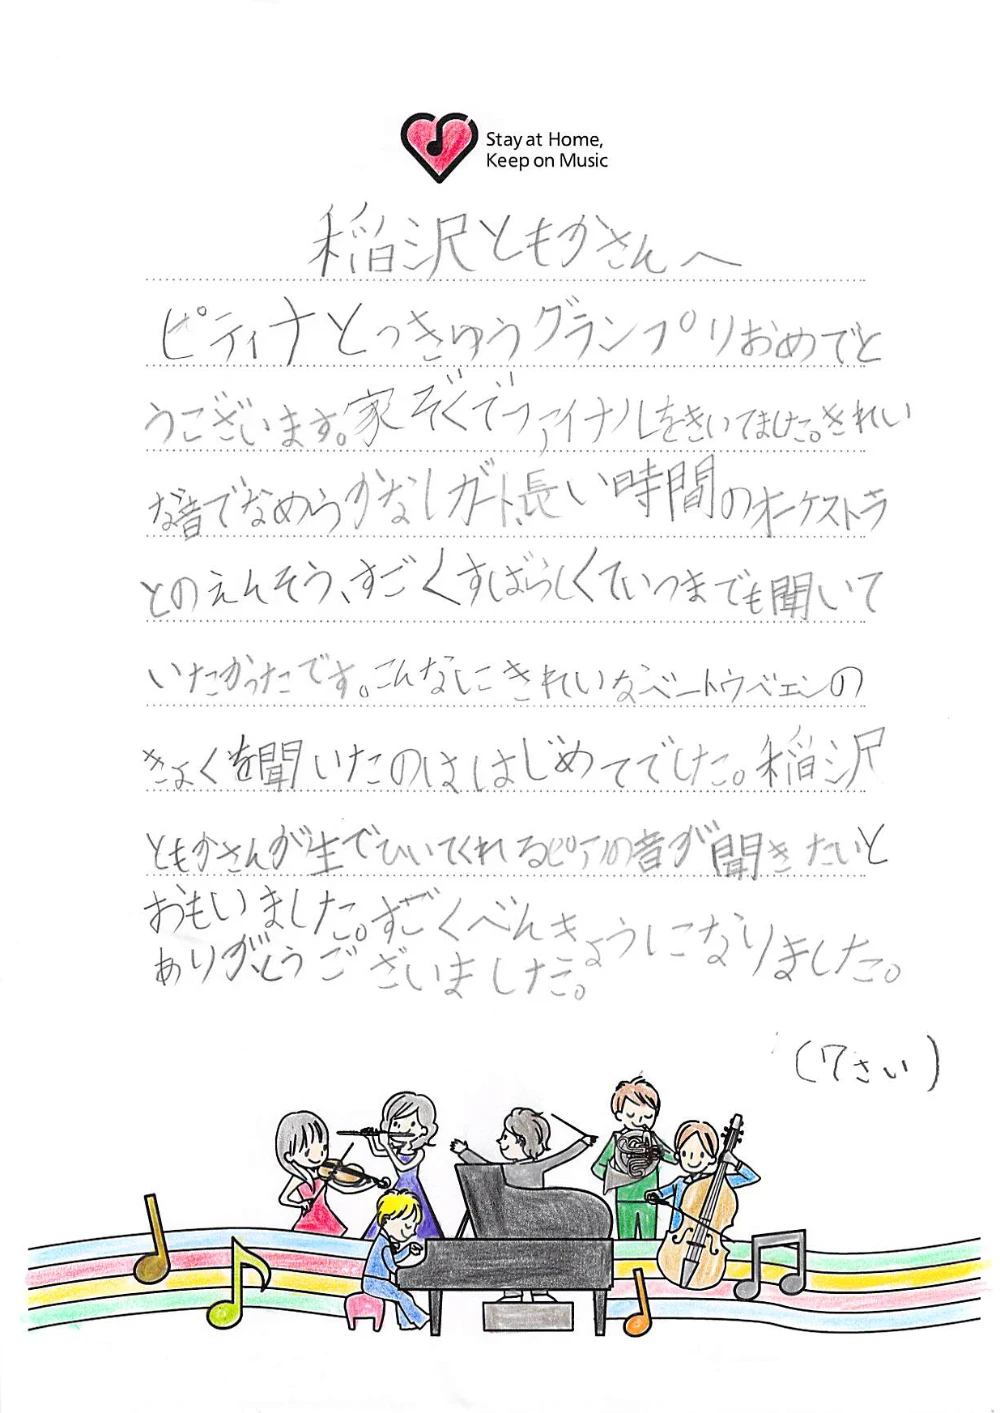 Stay at Home,
Keep on Music
稲沢ともかさんへ
ピティナとっきゅうグランプリおめでと
うございます。家ぞくでファイナルをきいてました。きれい
な音でなめらかなレガート、長い時間のオーケストラ
とのえんそう、すごくすばらしくていつまでも聞いて
いたかったです。こんなにきれいなベートウベェンの
きょくを聞いたのははじめてでした。稲沢
ともかさんが生でひいてくれるピアノの音が聞きたいと
おもいました。すごくべんきょうになりました。
ありがとうございました。
(7さい)